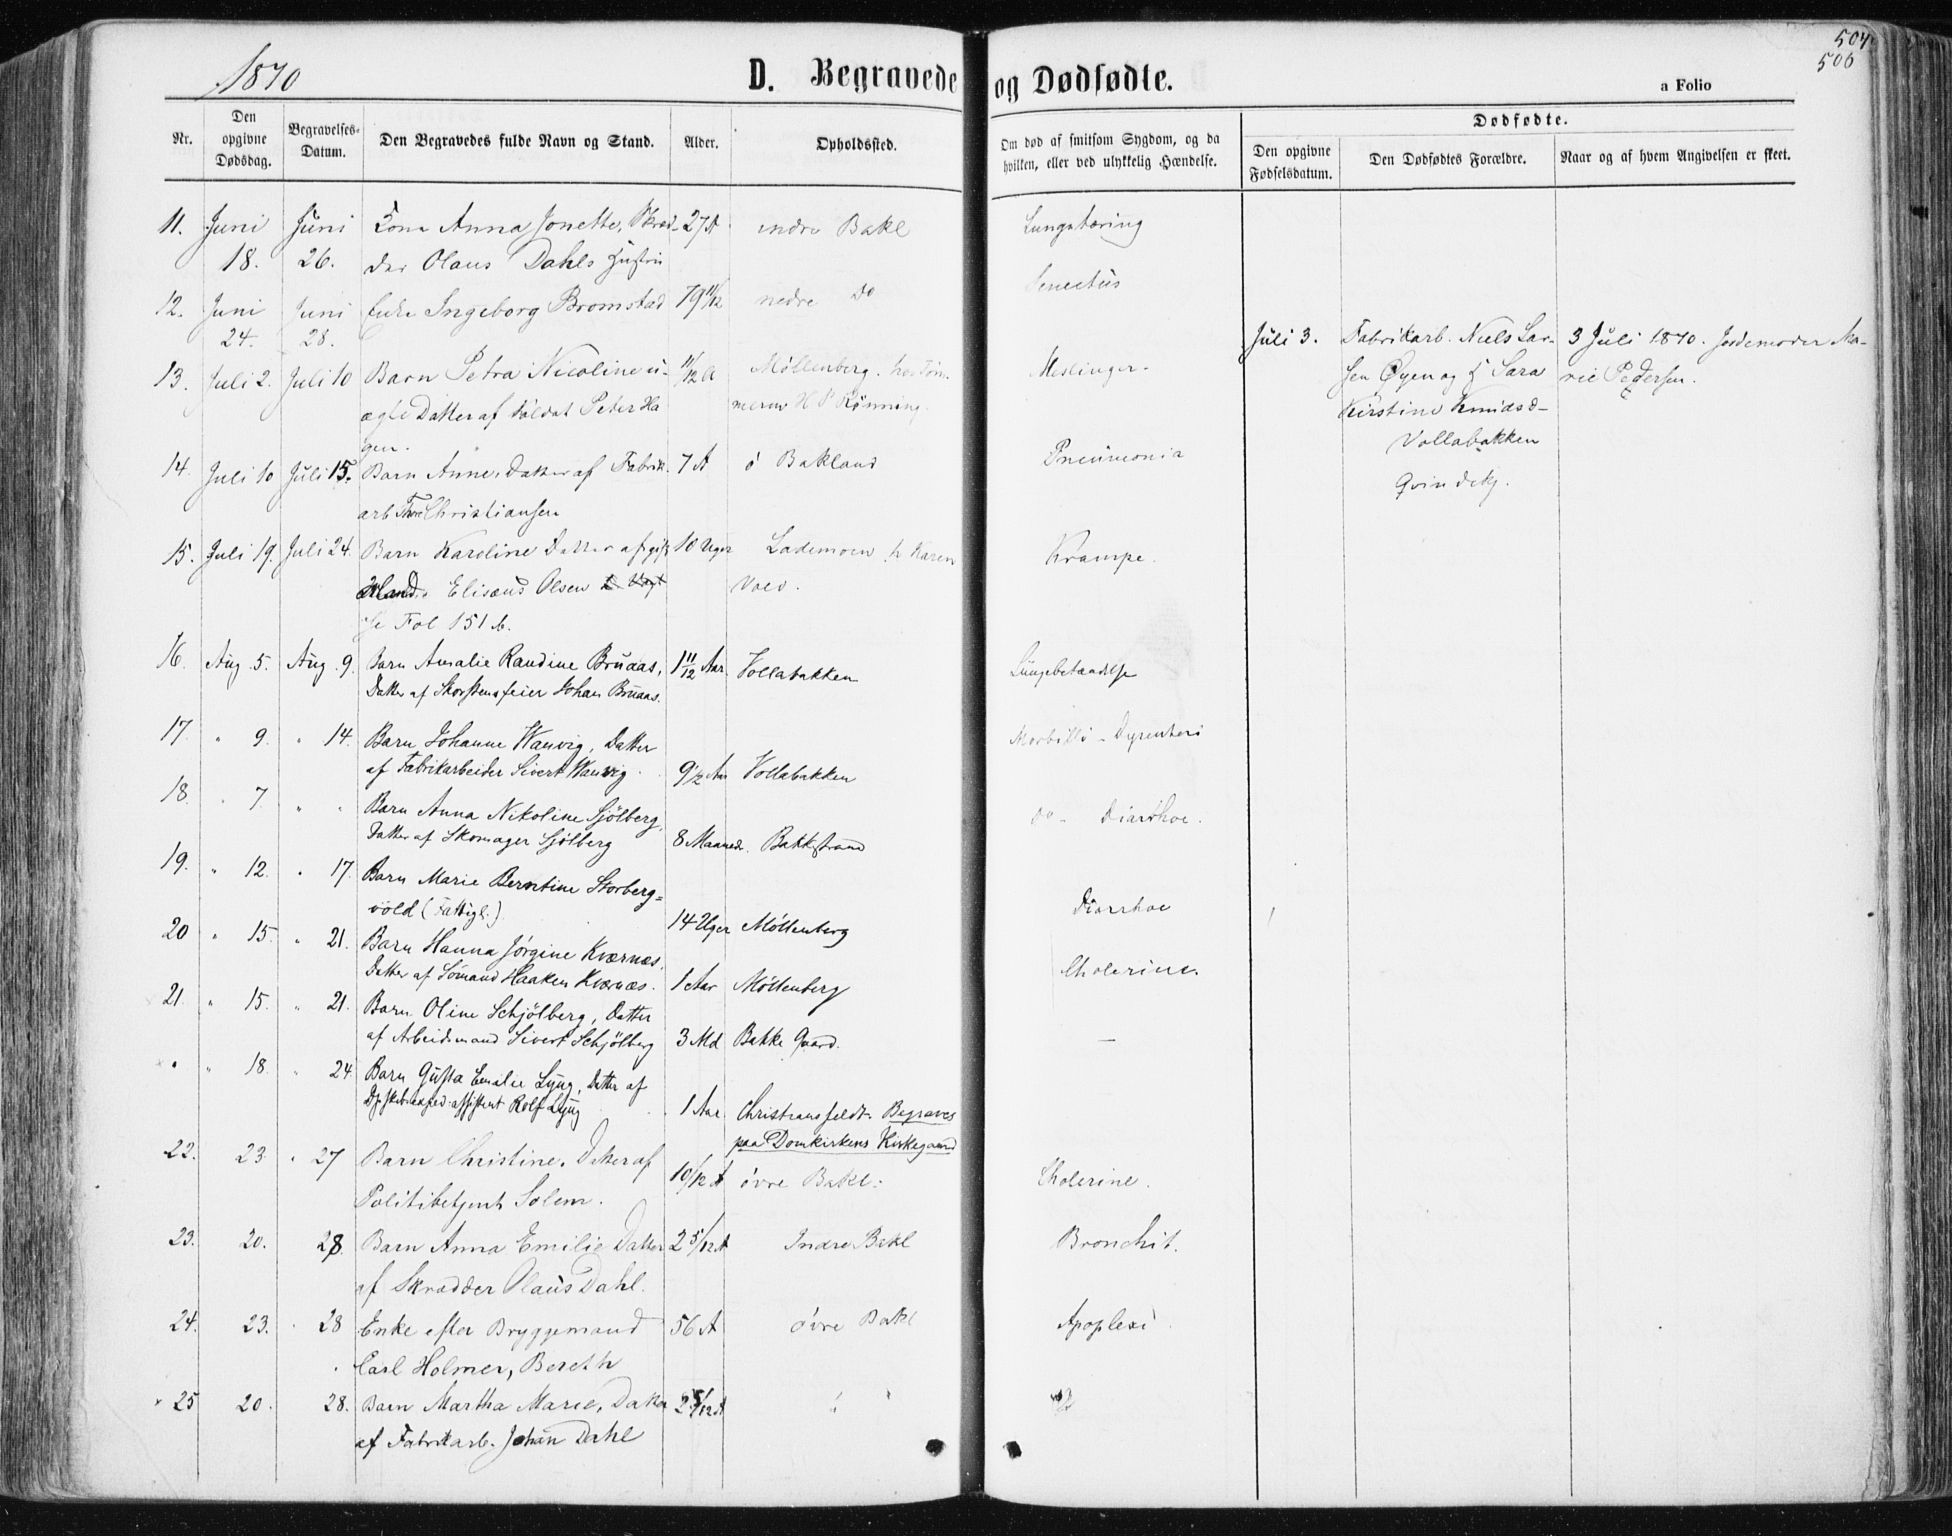 1870
D. Begravede og Dødfødte.
504
506
a Folio
Nr.
Den opgivne Dødsdag.
Begravelses-Datum.
Den Begravedes fulde Navn og Stand.
Alder.
Opholdssted.
Om død af smitsom Sygdom, og da hvilken, eller ved ulykkelig Hændelse.
Dødfødte.
Den opgivne Fødselsdatum.
Den Dødfødtes Forældre.
Naar og af hvem Angivelsen er skeet.
11. Juni Juni Kone Anna Jonette, Skræd- 27 A indre Bakl Lungetæring
18. 26. der Olaus Dahls Hustru
12. Juni Juni Enke Ingeborg Bromstad 79 11/12 nedre Do Senectus
24. 28.
Juli 3. Fabrikarb. Niels Lar- 3 Juli 1870. Jordemoder Ma-
sen Øyen og H Sara rie Pedersen.
Kirstine Knudsd-
Vollabakken
Qvindekj.
13. Juli 2. Juli 10 Barn Petra Nicoline u- 11/12 A Møllenberg. hos Töm- Meslinger.
ægte Datter af Soldat Peter Ha mermd H P Rönning.
gen.
14. Juli 10 Juli 15. Barn Anne, Datter af Fabrik- 7 A ö Bakland Pneumonia
arb Thore Christiansen
15. Juli 19. Juli 24. Barn Karoline Datter af gift 10 Uger Lademoen h Karen Krampe.
Elisæus Olsen Vold.
se Fol 151 b.
16. Aug. 5. Aug. 9. Barn Amalie Randine Bruaas, 1 11/12 Aar. Vollabakken Lungebetændelse
Datter af Skorstensfeier Johan Bruaas.
17. " 9. " 14. Barn Johanne Wanvig, Datter Morbilli - Dysenteri
af Fabrikarbeider Sivert Wanvig. 9 1/2 Aar Vollabakken
18. " 7 " " Barn Anna Nikoline Sjölberg, Do - Diarrhoe.
Datter af Skomager Sjölberg 8 Maaneder. Bakkestrand
19. " 12. " 17. Barn Marie Berntine Storberg-
vold (Fattigl.) 14 Uger Möllenberg Diarrhoe
20 " 15. " 21. Barn Hanna Jörgine Kværnæs,
Datter af Sömand Haaken Kværnæs. 1 Aar Möllenberg Cholerine.
21. " 15. " 21. Barn Oline Schjölberg, Datter
af Arbeidsmand Sivert Schjölberg 3 Md Bakke Gaard. —
" " 18. " 24. Barn Gusta Emilie Lyng, Datter af
Rolf Lyng 1 Aar Christiansfeldt. Begraves
paa Domkirkens Kirkegaard
22. 23. " 27 Barn Christine. Datter af 10/12 A övre Bakl: Cholerine.
Politibetjent Solem.
23. 20. 28. Barn Anna Emilie Datter 2 5/12 A Indre Bakl Bronchit.
af Skrædder Olaus Dahl.
24. 23. " 28 Enke efter Bryggemand 56 A övre Bakl Apoplexi.
Carl Holmer, Bereth
25 20. 28. Barn Martha Marie, Datter 2 5/12 A " "
af Fabrikarb. Johan Dahl